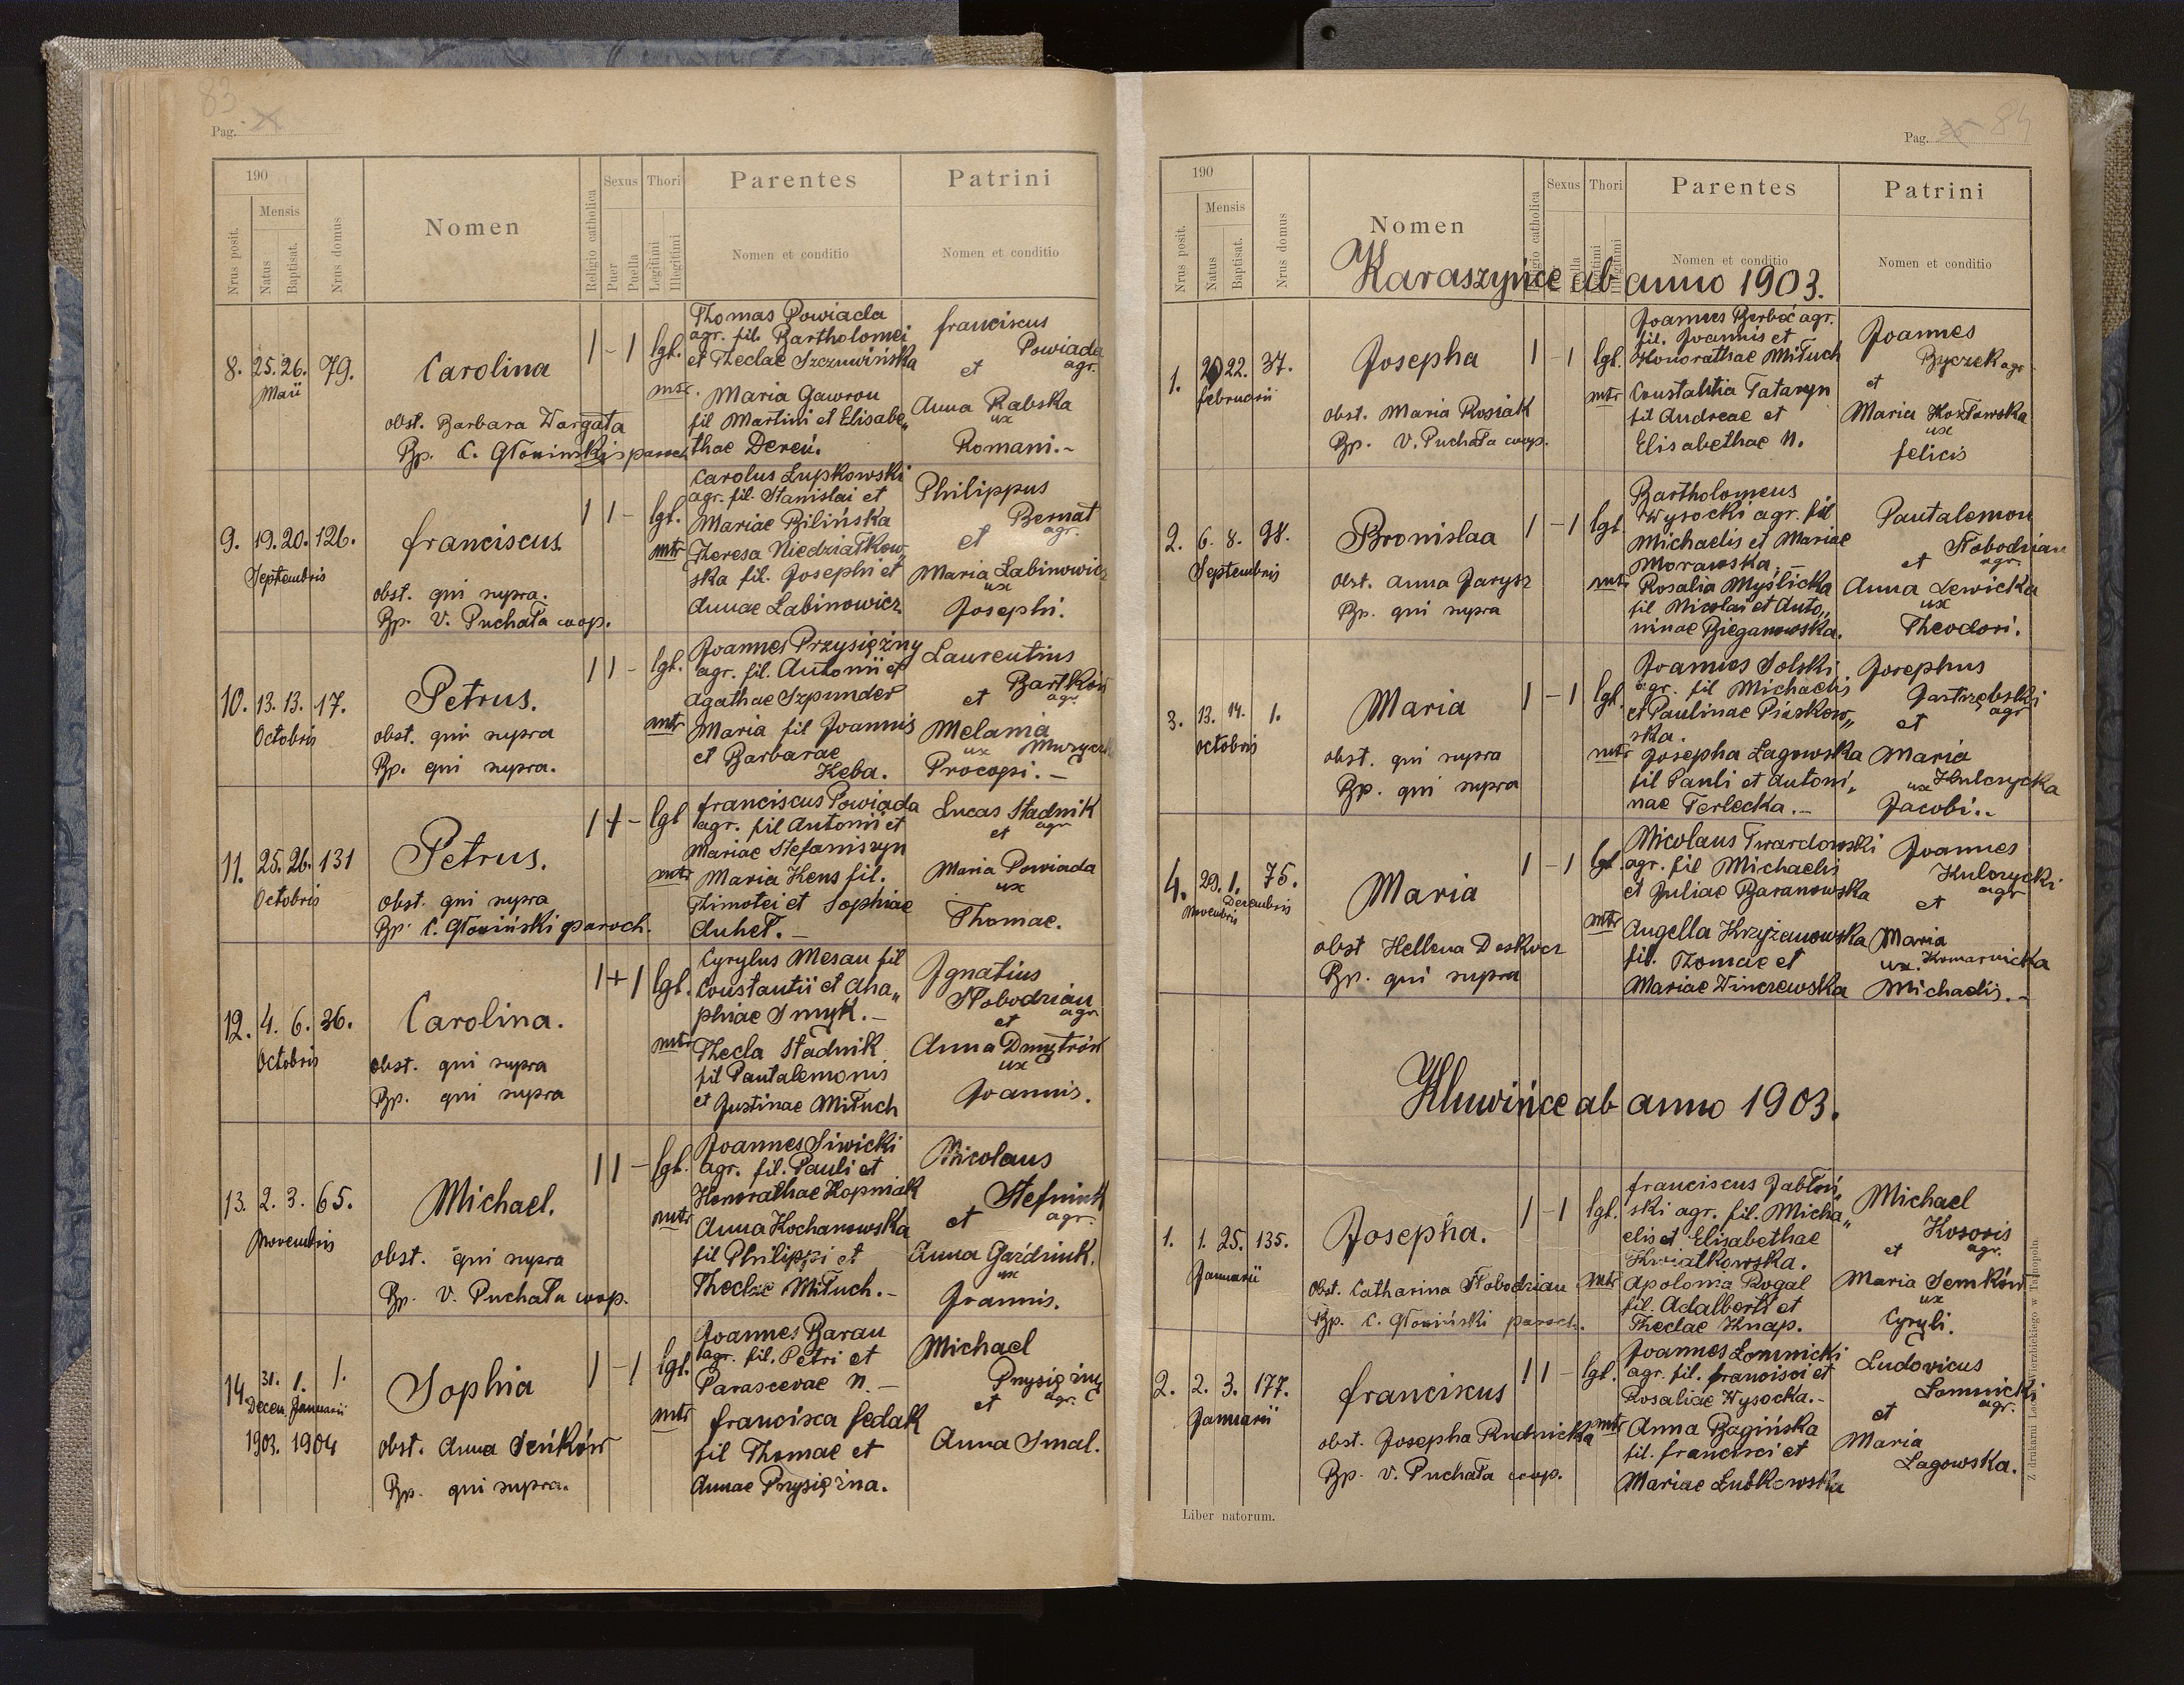 83
Pag.
190
Nrus posit.
Mensis
Natus
Baptisat.
Nrus domus
Nomen
Religio catholica
Sexus
Puer
Puella
Thori
Legitimi
Illegitimi
Parentes
Nomen et conditio
Patrini
Nomen et conditio
8. 25. 26. 79.
Maii
Carolina
obst. Barbara Wargata
Bp. C. Głowiński paroch
1 - 1 lgl.
mtr.
Thomas Powiada
agr. fil. Bartholomei
et Theclae Szczuwińska
Maria Gawron
fil Martini et Elisabe„
thae Dereń.
franciscus
Powiada
et agr.
Anna Rabska
ux
Romani.-
9. 19. 20. 126.
Septembris
franciscus
obst. qui supra.
Bp. V. Puchała coop.
1 1 - lgl.
mtr
Carolus Łupkowski
agr. fil. Stanislai et
Mariae Bilińska
Theresa Niedziałkow„
ska fil. Josephi et
Annae Łabinowicz
Philippus
Bernat
et agr.
Maria Łabinowicz
ux
Josephi.
10. 13. 13. 17.
Octobris
Petrus.
obst. qui supra
Bp. qui supra.
1 1 - lgl.
mtr
Joannes Przysiężny
agr. fil. Antonii et
Agathae Szpunder
Maria fil Joannis
et Barbarae
Keba.
Laurentius
Bartków
et agr.
Melania
ux
Procopi. -
11. 25. 26. 131
Octobris
Petrus.
obst. qui supra
Bp. C. Głowiński paroch.
1 + - lgl
mtr
franciscus Powiada
agr. fil Antonii et
Mariae Stefaniszyn
Maria Kens fil.
Thimotei et Sophiae
Auheł. -
Lucas Stadnik
et agr
Maria Powiada
ux
Thomae.
12. 4. 6. 36.
Octobris
Carolina.
obst. qui supra
Bp. qui supra
1 + 1 lgl.
mtr
Cyrylus Mesau fil
Constantii et Aha„
phiae Smyk. -
Thecla Stadnik
fil Pantalemonis
et Justinae Miłuch
Ignatius
Słobodzian
et agr
Anna Dmytrów
ux
Joannis.
13. 2. 3. 65.
Novembris
Michael.
obst. qui supra
Bp. V. Puchała coop.
1 1 - lgl.
mtr
Joannes Siwicki
agr. fil. Pauli et
Honorathae Kopniak
Anna Kochanowska
fil Philippi et
Theclae Miłuch. -
Nicolaus
Stefniuk
et agr.
Anna Gaździuk.
ux
Joannis.
14. 31. 1. 1.
Decem. Januarii
1903. 1904
Sophia
obst. Anna Seńków
Bp. qui supra.
1 - 1 lgl.
mtr
Joannes Baran
agr. fil. Petri et
Parascevae N. -
francisca fedak
fil Thomae et
Annae Przysiężna.
Michael
Przysiężny
et agr.
Anna Smal.
Pag. 84
190
Nrus posit.
Mensis
Natus
Baptisat.
Nrus domus
Nomen
Sexus
Thori
Parentes
Nomen et conditio
Patrini
Nomen et conditio
Karaszyńce ab anno 1903.
1. 22. 37.
februarii
Josepha
obst. Maria Rosiak
Bp. V. Puchała coop.
1 - 1 lgl.
mtr
Joannes Berbeć agr.
fil. Joannis et
Honorathae Miłuch
Constantia Tataryn
fil Andreae et
Elisabethae N.
Joannes
Byczek agr
et
Maria Kozłowska
ux
felicis
2. 6. 8. 98.
Septembris
Bronislaa
obst. Anna Jarysz
Bp. qui supra
1 - 1 lgl
mtr
Bartholomeus
Wysocki agr. fil
Michaelis et Mariae
Morawska. -
Rosalia Myślicka
fil Nicolai et Anto„
ninae Bieganowska.
Pantalemon
Słobodzian
et agr.
Anna Lewicka
ux
Theodori.
3. 13. 14. 1.
Octobris
Maria
obst. qui supra
Bp. qui supra
1 - 1 lgl.
mtr
Joannes Solski
agr. fil Michaelis
et Paulinae Piaskow„
ska.
Josepha Łagowska
fil Pauli et Antoni„
nae Terlecka. -
Josephus
Jastrzębski
et agr
Maria
ux Kulczycka
Jacobi. -
4. 29. 1. 75.
Novembris Decembris
Maria
obst Hellena Deskocz
Bp. qui supra
1 - 1 lgl.
mtr
Nicolaus Twardowski
agr. fil Michaelis
et Juliae Baranowska
Angella Krzyżanowska
fil. Thomae et
Mariae Winczewska
Joannes
Kulczycki
et agr
Maria
ux. Komarnicka
Michaelis. -
Kluwińce ab anno 1903.
1. 1. 25. 135.
Januarii
Josepha.
obst. Catharina Słobodzian
Bp. C. Głowiński paroch.
1 - 1 lgl.
mtr
franciscus Jabłoń„
ski agr. fil. Micha„
elis et Elisabethae
Kwiatkowska.
Apolonia Rogal
fil. Adalberti et
Theclae Knap.
Michael
Kosovis
et agr.
Maria Semków
ux
Cyryli.
2. 2. 3. 177.
Januarii
franciscus
obst. Josepha Rudnicka
Bp. V. Puchała coop.
1 1 - lgl.
mtr
Joannes Łomnicki
agr. fil. francisci et
Rosaliae Wysocka. -
Anna Bagińska
fil. francisci et
Mariae Łubkowska
Ludovicus
Łomnicki
et agr.
Maria
Łagowska.
Liber natorum.
Z drukarni L. Wierzbickiego w Tarnopolu.